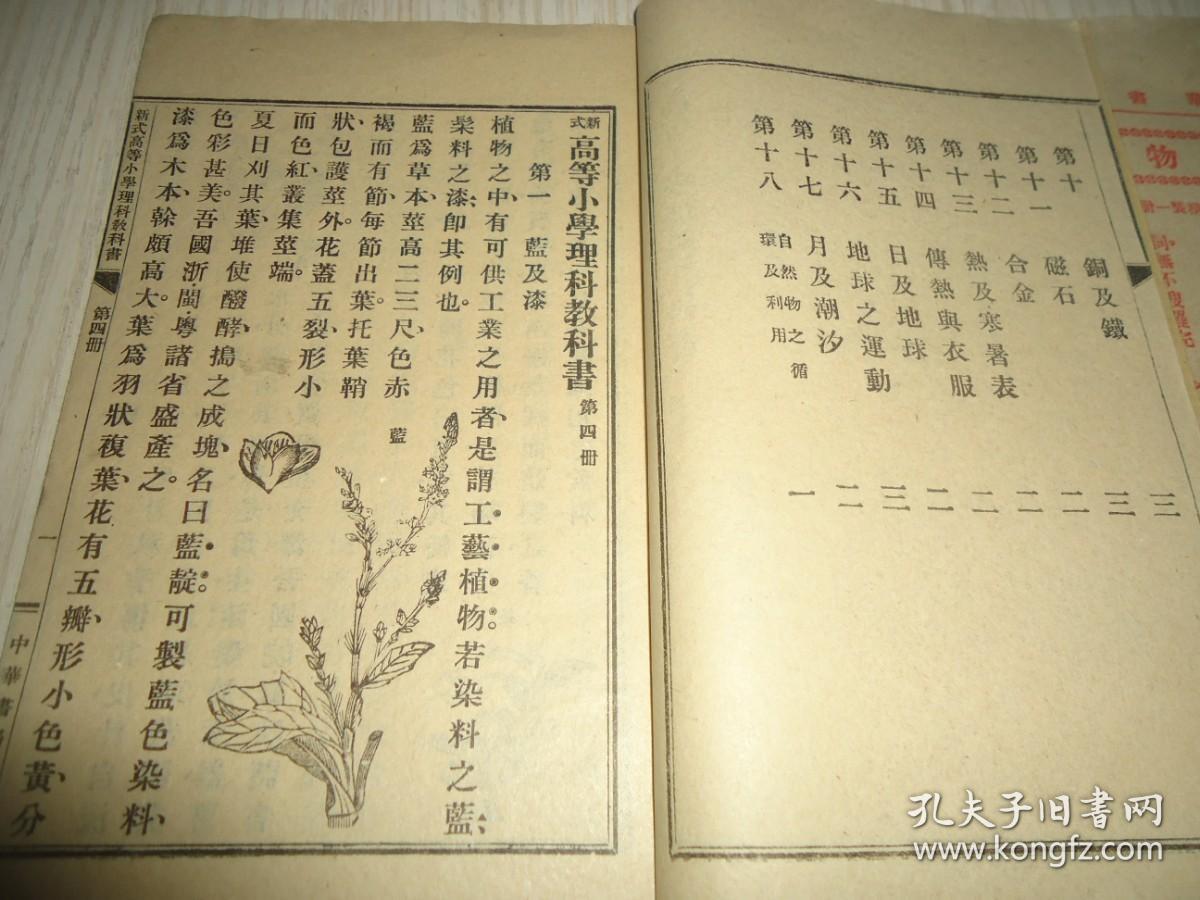 第十 銅及鐵 三
第十一 磁石 三
第十二 合金 二
第十三 熱及寒暑表 二
第十四 傳熱與衣服 二
第十五 日及地球 三
第十六 地球之運動 二
第十七 月及潮汐 二
第十八 自然物之循環及利用 一
新式高等小學理科敎科書 第四册
第一 藍及漆
植物之中、有可供工業之用者、是謂工藝植物。若染料之藍、
髹料之漆、卽其例也。
藍爲草本、莖高二三尺、色赤
褐而有節、每節出葉、托葉鞘
狀、包護莖外。花蓋五裂、形小
而色紅、叢集莖端。
夏日刈其葉、堆使醱酵、搗之成塊、名曰藍靛。可製藍色染料、
色彩甚美。吾國浙閩粵諸省盛產之。
漆爲木本、幹頗高大。葉爲羽狀複葉、花有五瓣、形小色黃、分
藍
新式高等小學理科敎科書
第四册
一
中華書
書
物
孔夫子旧书网
www.kongfz.com